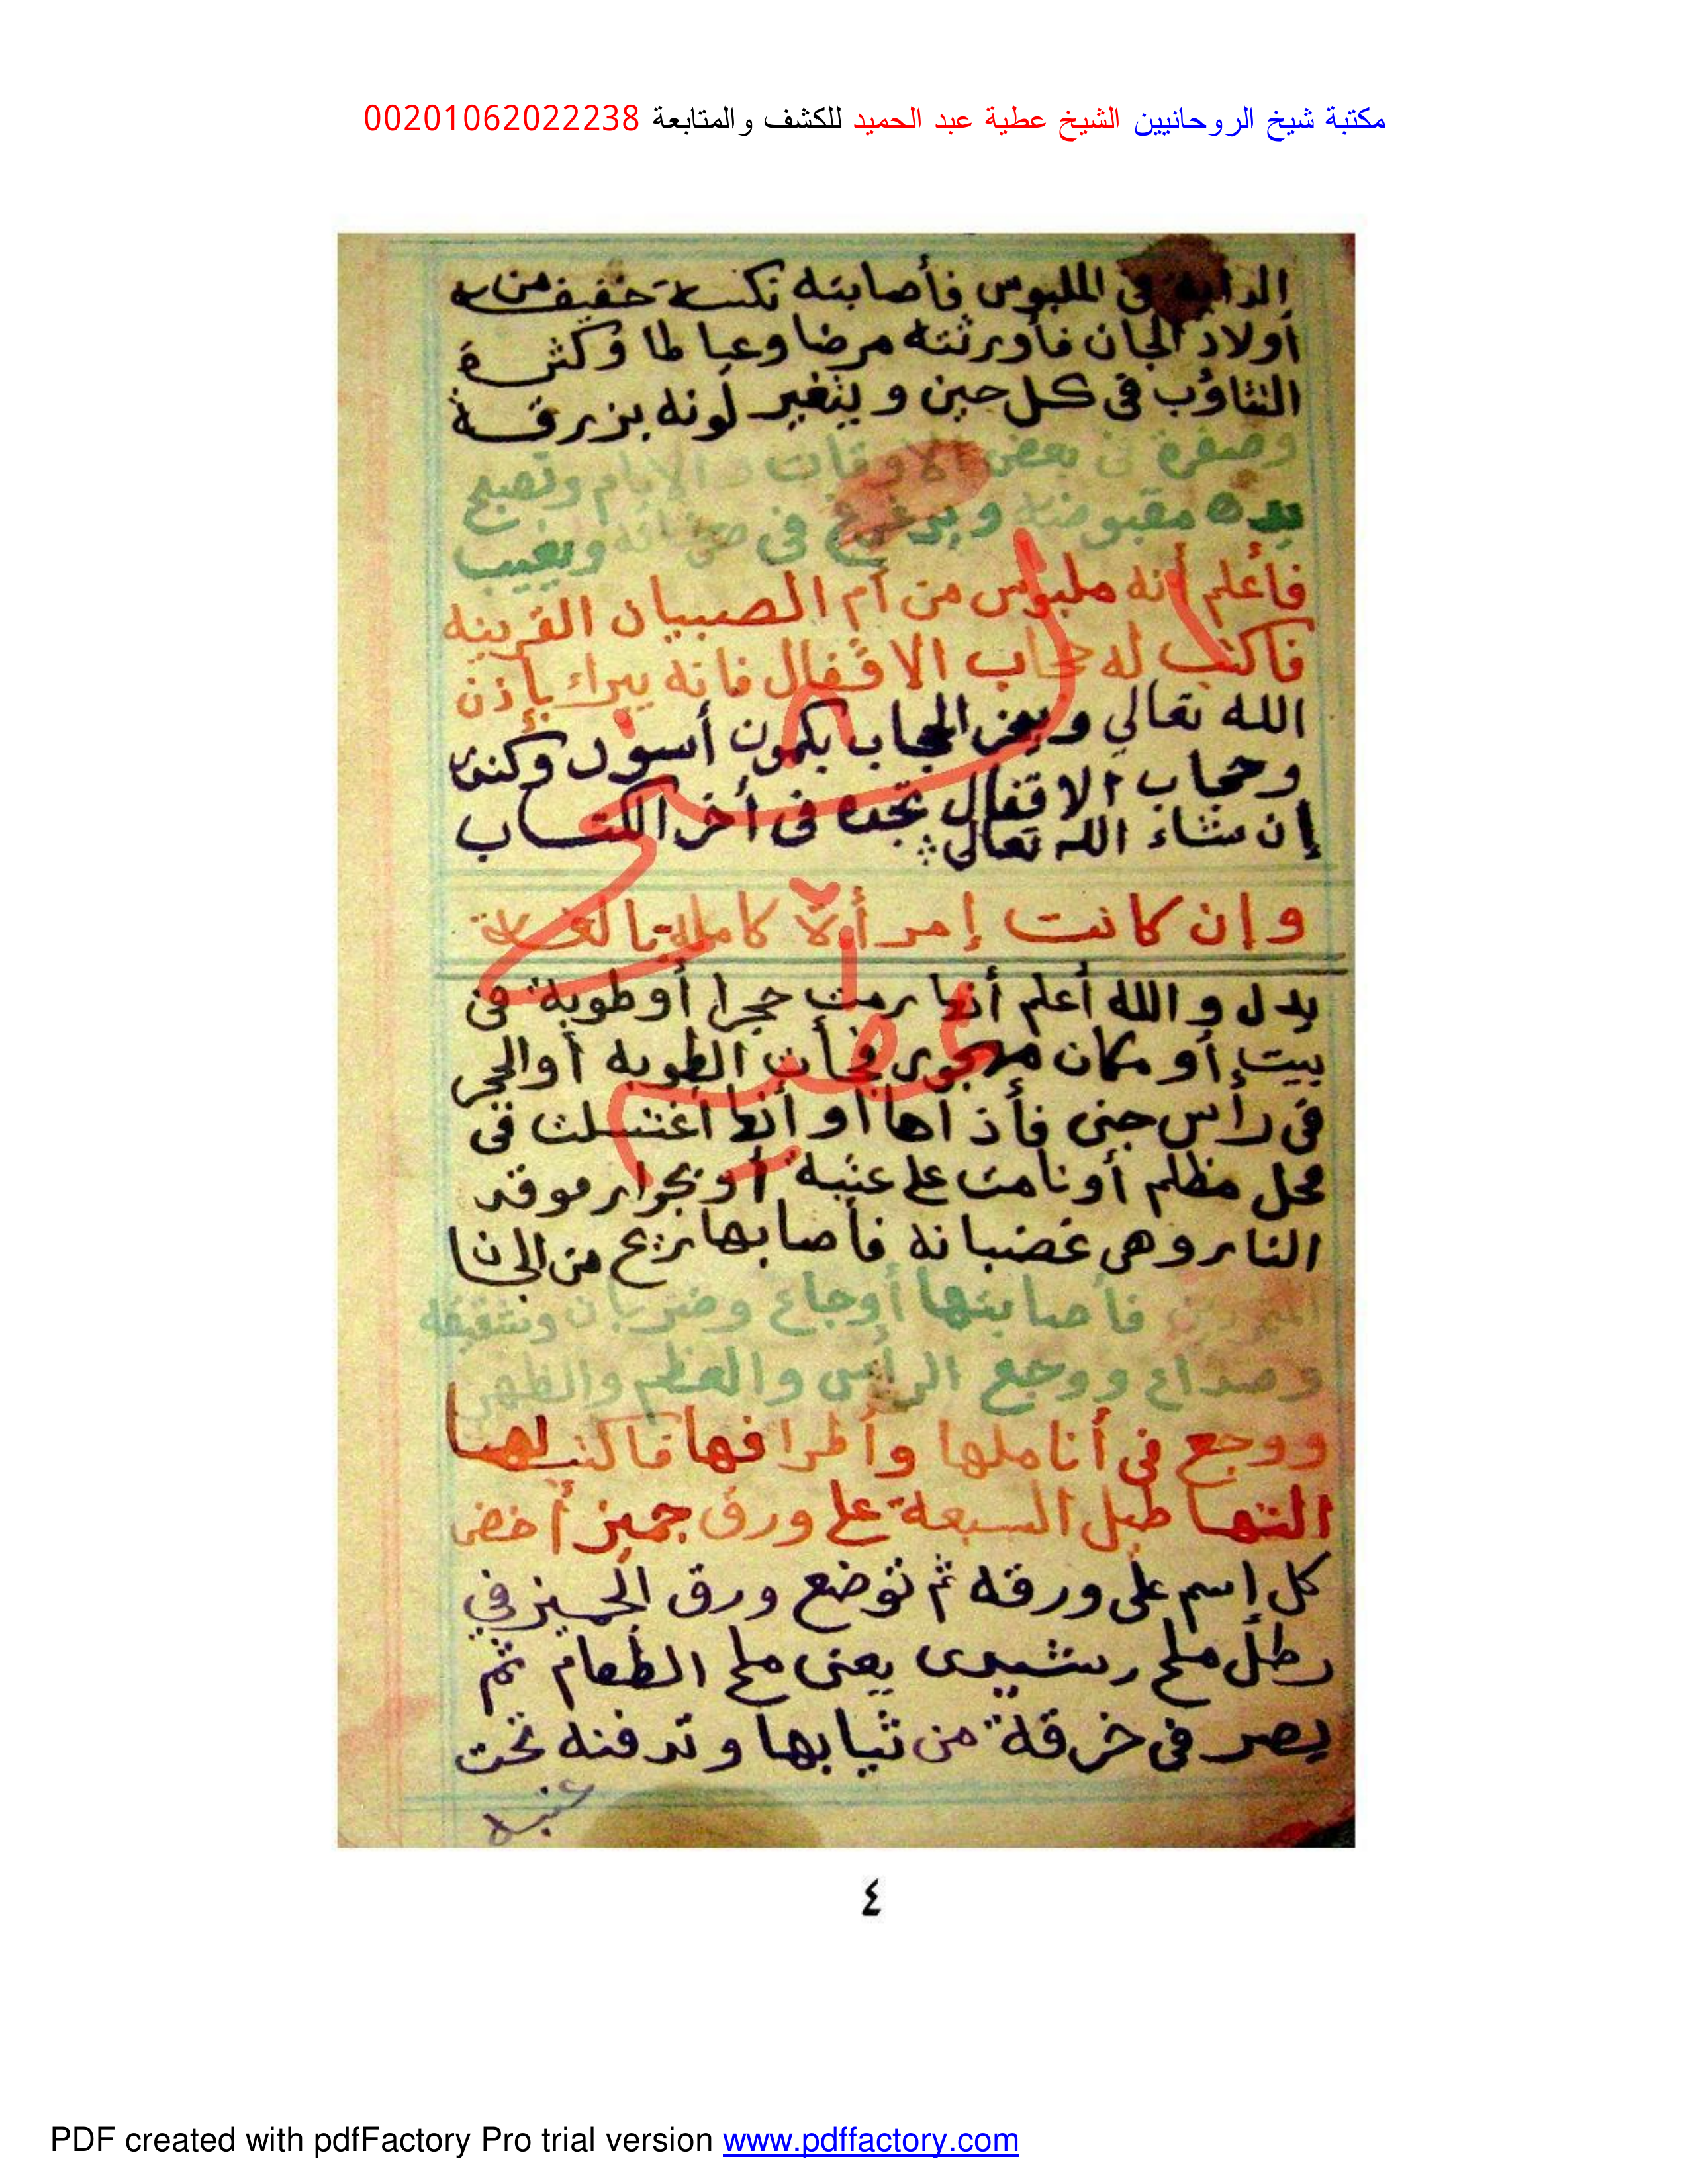 مكتبة شيخ الروحانيين الشيخ عطية عبد الحميد للكشف والمتابعة 00201062022238
الدابة فى الملبوس فأصابته نكسة خفيفه من
أولاد الجان فأورثته مرضا وعياطا وكثرة
التثاؤب فى كل حين ويتغير لونه بزرقة
وصفرة فى بعض الاوقات والايام وتصبح
يده مقبوضة و فى ويغيب
فأعلم أنه ملبوس من أم الصبيان القرينه
فاكتب له حجاب الاقفال فانه يبراء بإذن
الله تعالي ويبخر الحجاب بكمون أسود
وحجاب الاقفال تجده فى أخر الكتاب
إن شاء الله تعالى
وإن كانت إمرأة كاملة
يدل والله أعلم أنها رمت حجرا أو طوبة فى
بيت أو مكان مهجور فجأت الطوبه أو الحجر
فى رأس جنى فأذاها أو أنها أغتسلت فى
محل مظلم أو نامت على عتبة أو بجوار موقد
النار وهى غضبانه فأصابها ريح من الجان
فأصابتها أوجاع وضربان وشقيقه
وصداع ووجع الرأس والعظم والظهر
ووجع فى أناملها وأطرافها فاكتب لها
التها طيل السبعة على ورق جميز أخضر
كل إسم على ورقه ثم توضع ورق الجميز في
رطل ملح رشيدى يعنى ملح الطعام ثم
يصر فى خرقة من ثيابها وتدفنه تحت
عتبه
الشيخ
٤
PDF created with pdfFactory Pro trial version www.pdffactory.com